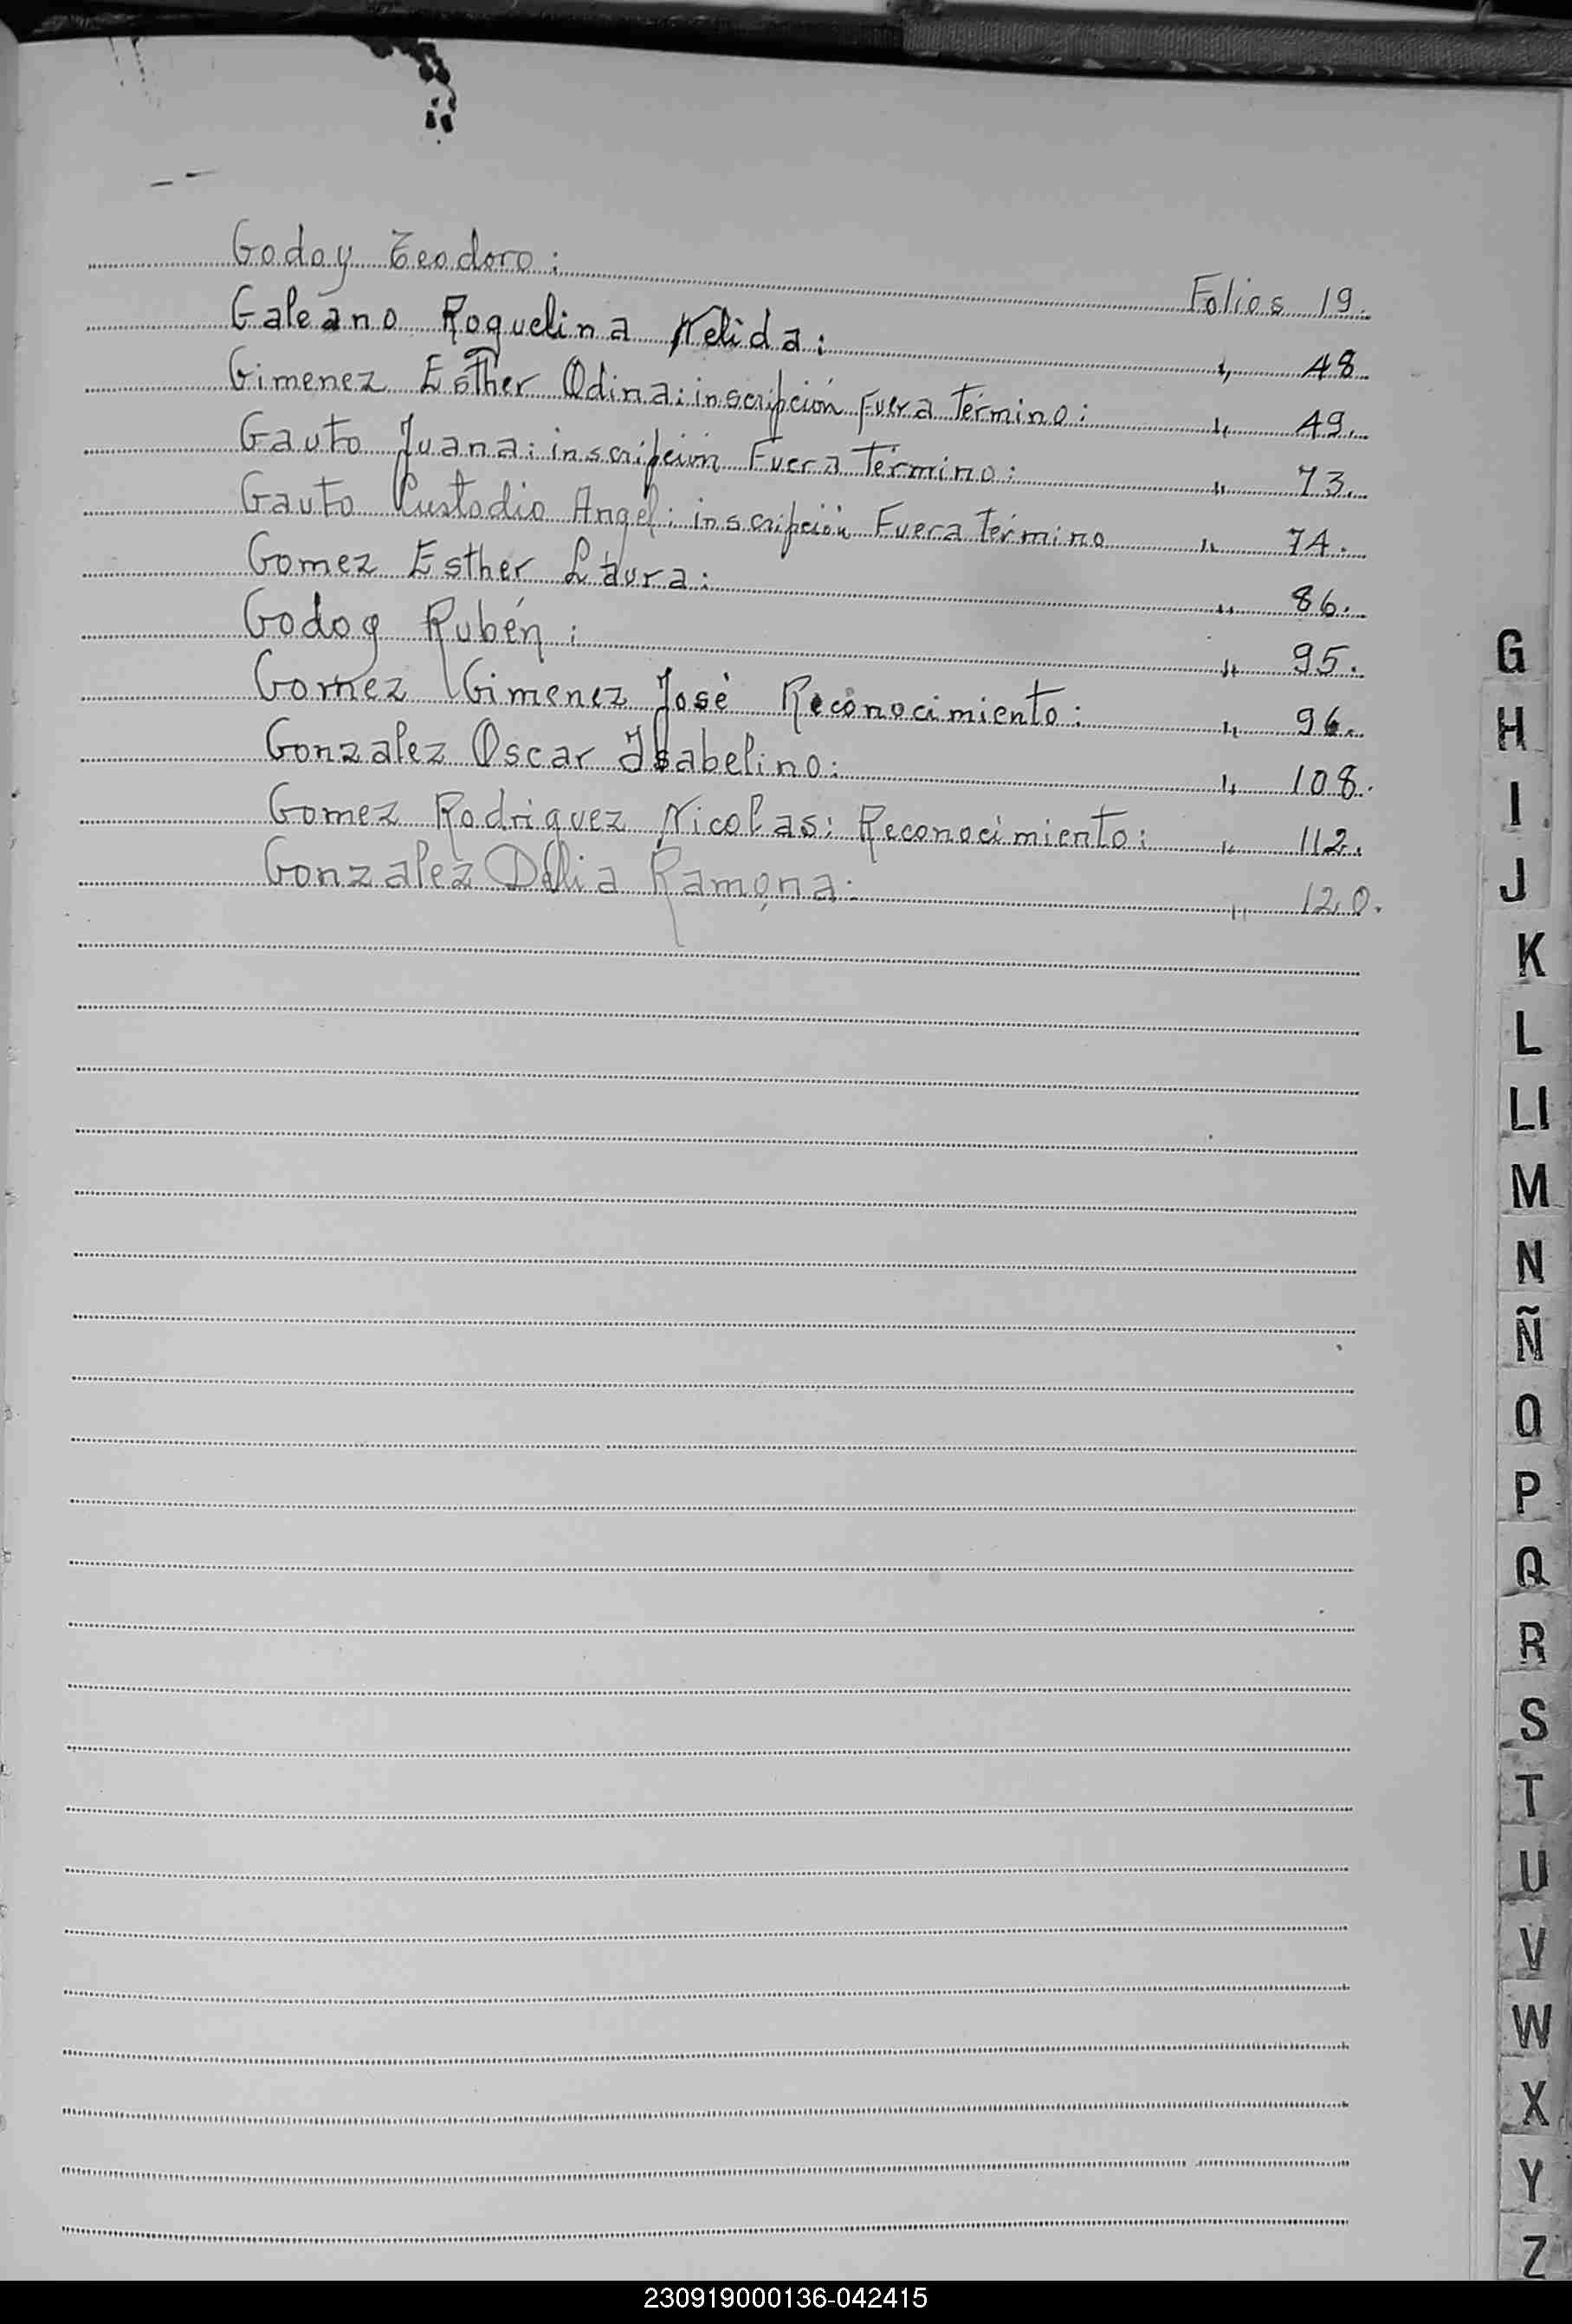 Godoy Teodoro: Folios 19.
Galeano Roquelina Nelida: " 48.
Gimenez Esther Odina: inscripción Fuera término: " 49.
Gauto Juana: inscripción Fuera término: " 73.
Gauto Custodio Angel: inscripción Fuera término " 74.
Gomez Esther Laura: " 86.
Godog Rubén: " 95.
Gomez Gimenez José Reconocimiento: " 96.
Gonzalez Oscar Isabelino: " 108.
Gomez Rodriguez Nicolas: Reconocimiento: " 112.
Gonzalez Delia Ramona: " 120.
G
H
I
J
K
L
Ll
M
N
Ñ
O
P
Q
R
S
T
U
V
W
X
Y
Z
230919000136-042415